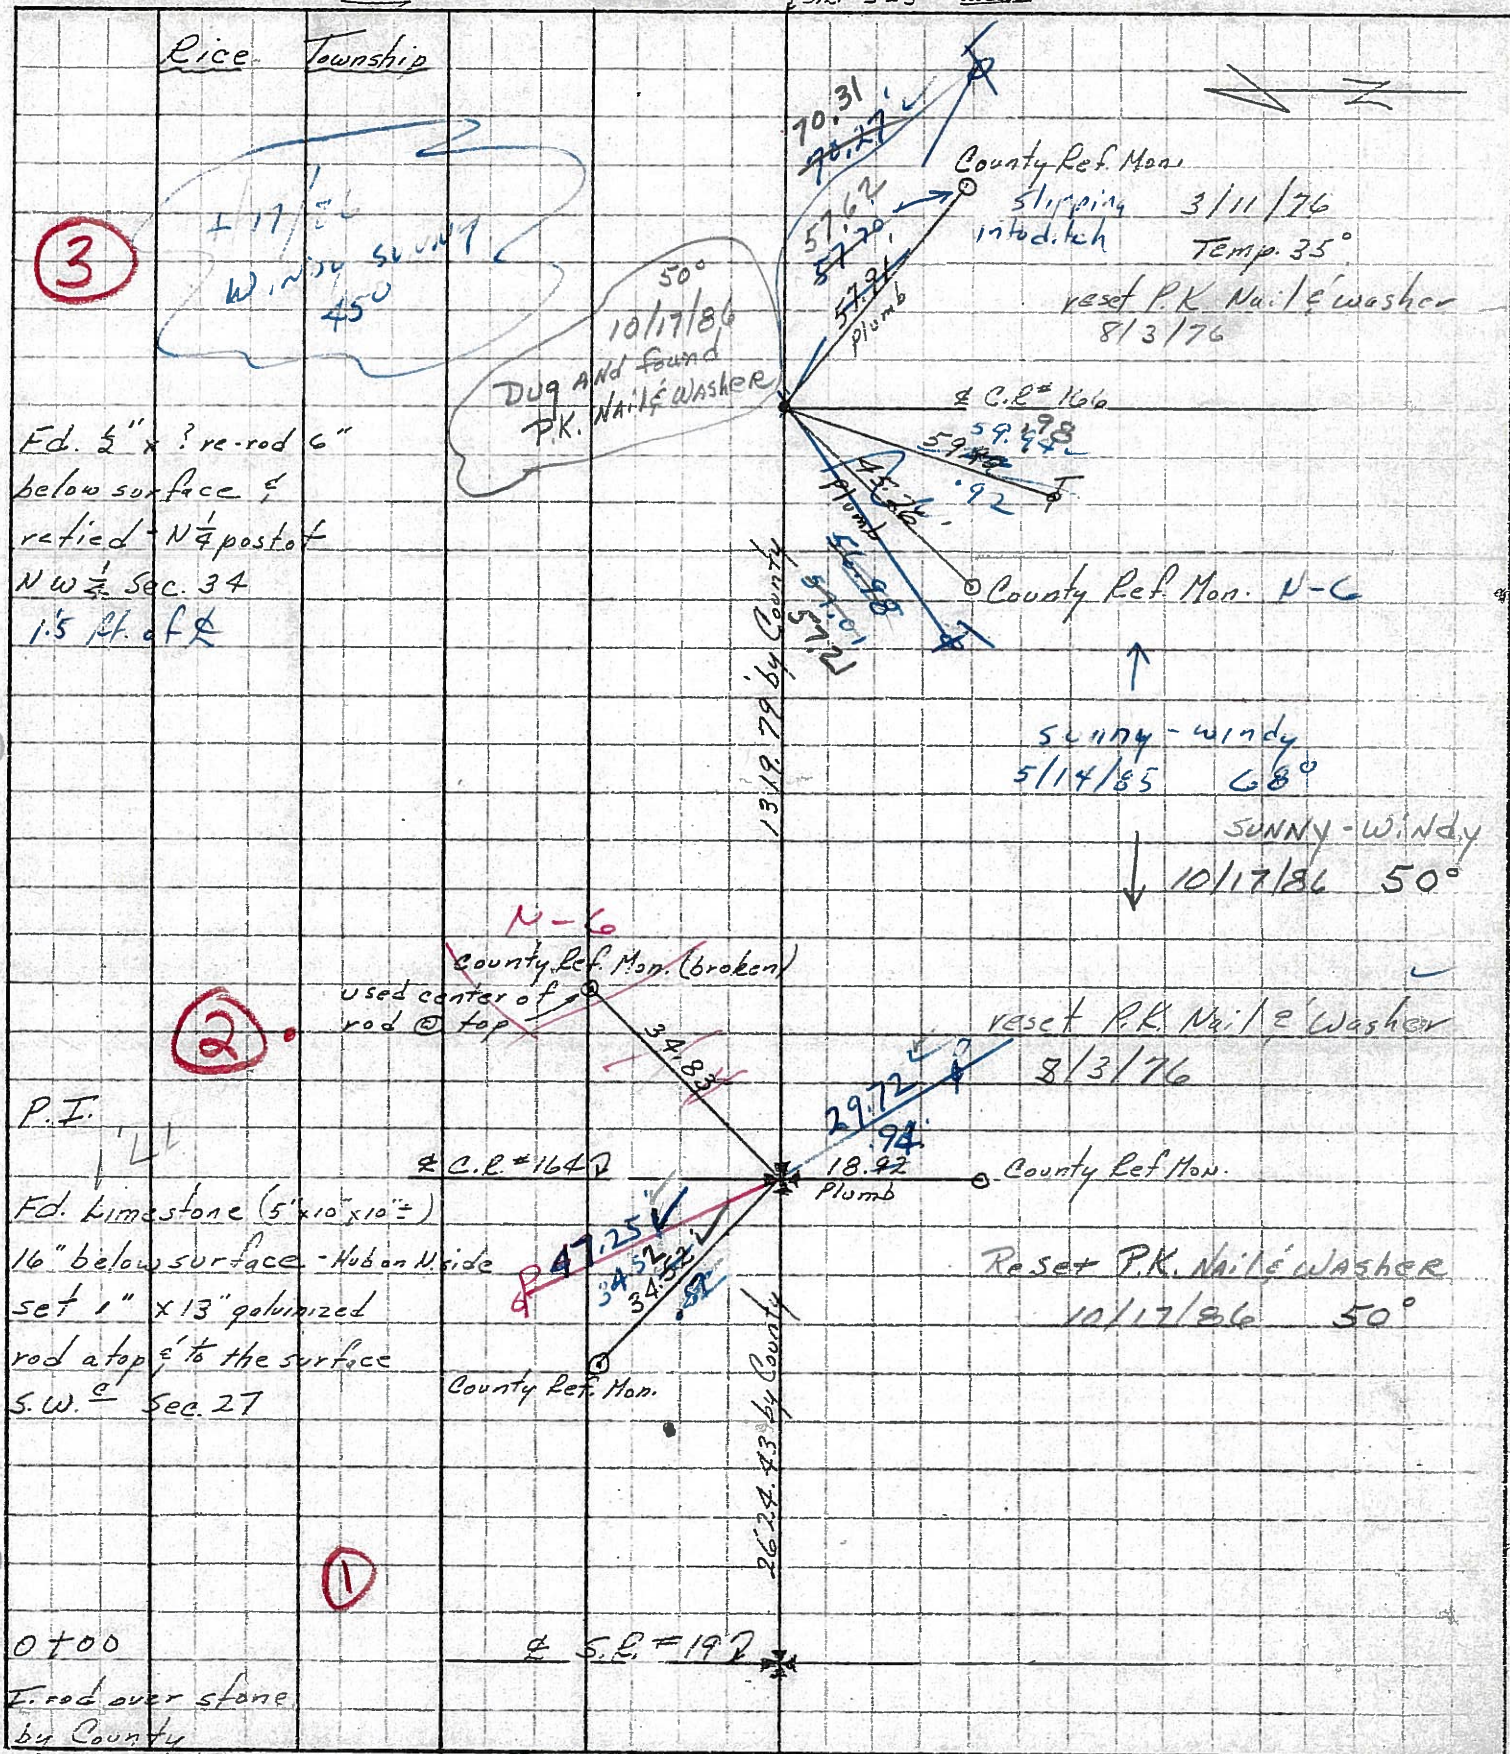 Rice Township
70.31
70.27'
County Ref. Mon.
slipping
into ditch
3/11/76
Temp. 35°
57.62
57.70
57.91'
Plumb
reset P.K. Nail & washer
8/3/76
③
1/17/86
WINDY SUNNY
45°
50°
10/17/86
DUG AND found
P.K. NAIL & WASHER
℄ C.R. # 166
59.98
59.94
.92
45.76
Plumb
56.98
57.01
57.21
County Ref. Mon. N-G
Fd. ½" x ? re-rod 6"
below surface &
retied - N¼ post of
NW¼ Sec. 34
1.5 ft. of ℄
1319.79 by County
sunny - windy
5/14/85 68°
SUNNY - WINDY
10/17/86 50°
N-G
County Ref. Mon. (broken)
used center of
rod @ top
34.83'
②
reset P.K. Nail & Washer
8/3/76
29.72
.94
18.92
Plumb
County Ref Mon.
P.I.
℄ C.R. # 164
Fd. Limestone (5"x10"x10"±)
16" below surface - Hub on N. side
set 1" x 13" galvinized
rod atop & to the surface
S.W. c Sec. 27
47.25'
34.52
34.52'
.82
County Ref. Mon.
Reset P.K. NAIL & WASHER
10/17/86 50°
2624.43 by County
①
0+00
℄ S.R. # 19
I. rod over stone
by County